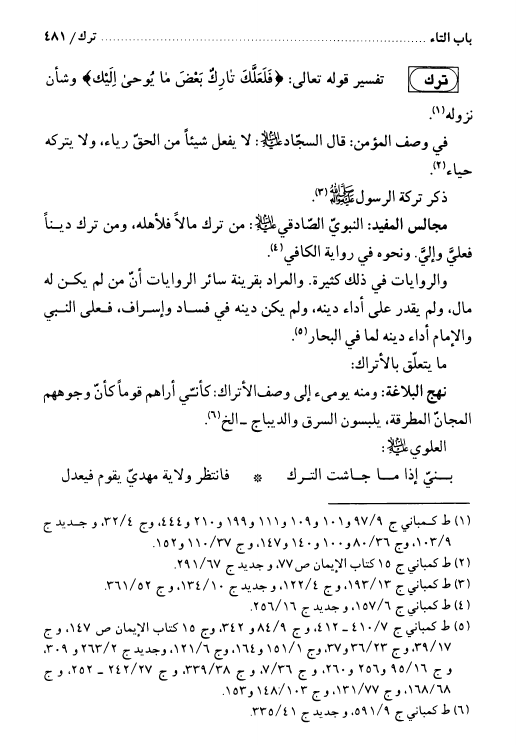 باب التاء ........................................ ترك / ٤٨١
ترك تفسير قوله تعالى: ﴿فَلَعَلَّكَ تٰارِكٌ بَعْضَ مٰا يُوحىٰ اِلَيْك﴾ وشأن
نزوله(١).
في وصف المؤمن: قال السجّاد عليه السلام: لا يفعل شيئاً من الحقّ رياء، ولا يتركه
حياء(٢).
ذكر تركة الرسول ﷺ(٣).
مجالس المفيد: النبويّ الصّادقي عليه السلام: من ترك مالاً فلأهله، ومن ترك ديـناً
فعليَّ وإليَّ. ونحوه في رواية الكافي(٤).
والروايات في ذلك كثيرة. والمراد بقرينة سائر الروايات أنّ من لم يكـن له
مال، ولم يقدر على أداء دينه، ولم يكن دينه في فساد وإسراف، فـعلى النبي
والإمام أداء دينه لما في البحار(٥).
ما يتعلّق بالأتراك:
نهج البلاغة: ومنه يومىء إلى وصف الأتراك: كأنّـي أراهم قوماً كأنّ وجوههم
المجانّ المطرقة، يلبسون السرق والديباج ـ الخ(٦).
العلوي عليه السلام:
بـــنيّ إذا مـــا جـاشت التـرك * فانتظر ولاية مهديّ يقوم فيعدل
(١) ط كـمباني ج ٩٧/٩ و ١٠١ و ١٠٩ و ١١١ و ١٩٩ و ٢١٠ و ٤٤٤، وج ٣٢/٤، و جـديد ج
١٠٣/٩، وج ٨٠/٣٦ و ١٠٠ و ١٤٠ و ١٤٧، و ج ١١٠/٣٧ و ١٥٢.
(٢) ط كمباني ج ١٥ كتاب الإيمان ص ٧٧، و جديد ج ٢٩١/٦٧.
(٣) ط كمباني ج ١٩٣/١٣، و ج ١٢٢/٤، و جديد ج ١٣٤/١٠، و ج ٣٦١/٥٢.
(٤) ط كمباني ج ١٥٧/٦، و جديد ج ٢٥٦/١٦.
(٥) ط كمباني ج ٤١٠/٧ ـ ٤١٢، و ج ٨٤/٩ و ٣٤٢، وج ١٥ كتاب الإيمان ص ١٤٧، و ج
٣٩/١٧، و ج ٣٦/٢٣ و ٣٧، و ج ١٥١/١ و ١٦٤، وج ١٢١/٦، وجديد ج ٢٦٣/٢ و ٣٠٩،
و ج ٩٥/١٦ و ٢٥٦ و ٢٦٠، و ج ٧/٣٦، و ج ٣٣٩/٣٨، و ج ٢٤٢/٢٧ ـ ٢٥٢، و ج
١٦٨/٦٨، و ج ١٣١/٧٧، و ج ١٤٨/١٠٣ و ١٥٣.
(٦) ط كمباني ج ٥٩١/٩، و جديد ج ٣٣٥/٤١.